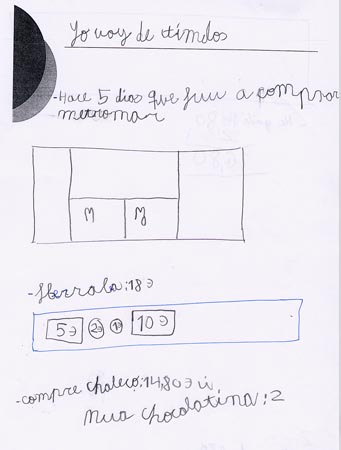 Yo voy de tindos
-Hace 5 dias que fuu a comprar
metromar
M M
:18€
5€ 2€ 1€ 10€
-compre chaleco:14,80€ i
una chocolatina:2